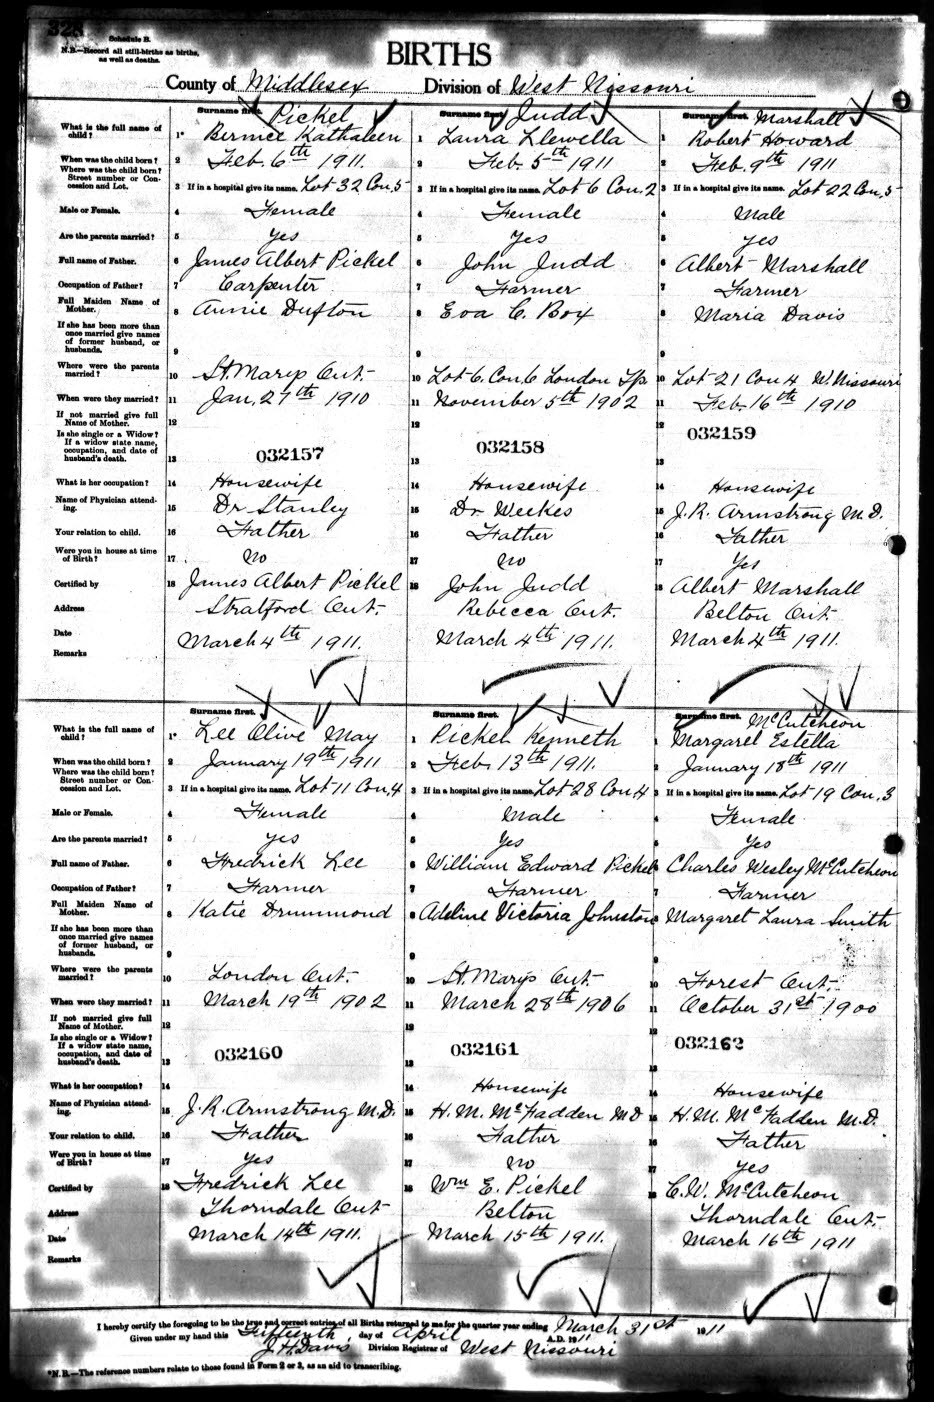 328
Schedule B.
N.B.—Record all still-births as births,
as well as deaths.
BIRTHS
County of Middlesex Division of West Nissouri
Surname first. Pickel Surname first. Judd Surname first. Marshall
What is the full name of child? 1* Bernice Kathaleen 1 Laura Llewella 1 Robert Howard
When was the child born? 2 Feb. 6th 1911. 2 Feb 5th 1911 2 Feb. 9th 1911
Where was the child born?
Street number or Con-
cession and Lot. 3 If in a hospital give its name. Lot 32 Con, 5 3 If in a hospital give its name. Lot 6 Con. 2 3 If in a hospital give its name. Lot 22 Con, 5
Male or Female. 4 Female 4 Female 4 Male
Are the parents married? 5 yes 5 yes 5 yes
Full name of Father. 6 James Albert Pickel 6 John Judd 6 Albert Marshall
Occupation of Father? 7 Carpenter 7 Farmer 7 Farmer
Full Maiden Name of
Mother. 8 Annie Dufton 8 Eva C. Box 8 Maria Davis
If she has been more than
once married give names
of former husband, or
husbands. 9 9 9
Where were the parents
married? 10 St. Marys Ont. 10 Lot 6. Con. 6 London Tp 10 Lot 21 Con 4 W. Nissouri
When were they married? 11 Jan. 27th 1910 11 November 5th 1902 11 Feb. 16th 1910
If not married give full
Name of Mother. 12 12 12
Is she single or a Widow?
If a widow state name,
occupation, and date of
husband's death. 13 032157 13 032158 13 032159
What is her occupation? 14 Housewife 14 Housewife 14 Housewife
Name of Physician attend-
ing. 15 Dr Stanley 15 Dr. Weekes 15 J. R. Armstrong M.D.
Your relation to child. 16 Father 16 Father 16 Father
Were you in house at time
of Birth? 17 no 17 no 17 Yes
Certified by 18 James Albert Pickel 18 John Judd 18 Albert Marshall
Address Stratford Ont. Rebecca Ont. Belton Ont.
Date March 4th 1911. March 4th 1911. March 4th 1911.
Remarks
Surname first. Surname first. Surname first. McCutcheon
What is the full name of
child? 1* Lee Olive May 1 Pickel Kenneth 1 Margaret Estella
When was the child born? 2 January 19th 1911 2 Feb. 13th 1911. 2 January 18th 1911
Where was the child born?
Street number or Con-
cession and Lot. 3 If in a hospital give its name. Lot 11 Con, 4 3 If in a hospital give its name. Lot 28 Con, 4 3 If in a hospital give its name. Lot 19 Con, 3
Male or Female. 4 Female 4 Male 4 Female
Are the parents married? 5 yes 5 Yes 5 Yes
Full name of Father. 6 Fredrick Lee 6 William Edward Pickel 6 Charles Wesley McCutcheon
Occupation of Father? 7 Farmer 7 Farmer 7 Farmer
Full Maiden Name of
Mother. 8 Katie Drummond 8 Adeline Victoria Johnston 8 Margaret Laura Smith
If she has been more than
once married give names
of former husband, or
husbands. 9 9 9
Where were the parents
married? 10 London Ont. 10 St. Marys Ont. 10 Forest Ont.
When were they married? 11 March 19th 1902 11 March 28th 1906 11 October 31st 1900
If not married give full
Name of Mother. 12 12 12
Is she single or a Widow?
If a widow state name,
occupation, and date of
husband's death. 13 032160 13 032161 13 032162
What is her occupation? 14 14 Housewife 14 Housewife
Name of Physician attend-
ing. 15 J. R. Armstrong M.D. 15 H. M. McFadden MD 15 H. M. McFadden M.D.
Your relation to child. 16 Father 16 Father 16 Father
Were you in house at time
of Birth? 17 yes 17 no 17 yes
Certified by 18 Fredrick Lee 18 Wm E. Pickel 18 C. W. McCutcheon
Address Thorndale Ont Belton Thorndale Ont.
Date March 14th 1911. March 15th 1911. March 16th 1911
Remarks
I hereby certify the foregoing to be the true and correct entries of all Births returned to me for the quarter year ending March 31st 1911
Given under my hand this Fifteenth day of April A.D. 1911
J. H. Davis Division Registrar of West Nissouri
*N.B.—The reference numbers relate to those found in Form 2 or 3, as an aid to transcribing.